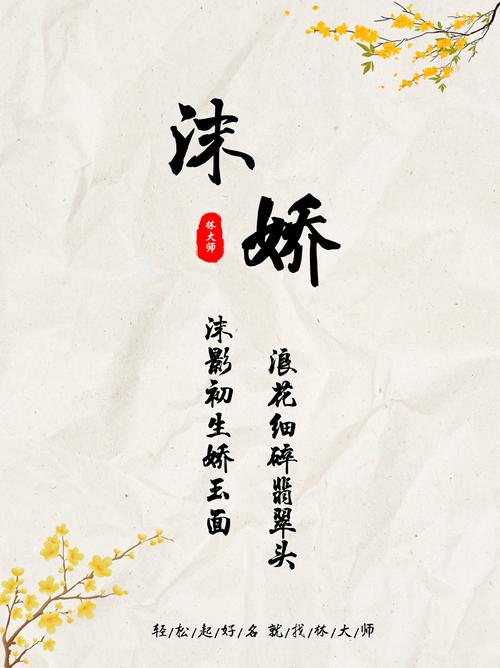 沫
娇
林大师
浪花细碎翡翠头
沫影初生娇玉面
轻/松/起/好/名 就/找/林/大/师